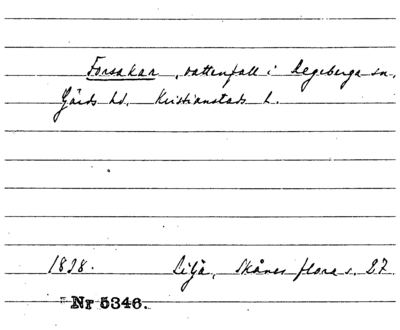 Forsakar, vattenfall i Degeberga sn,
Gärds hd. Kristianstads l.
1838. Lilja, Skånes flora s. 27
Nr 5346.